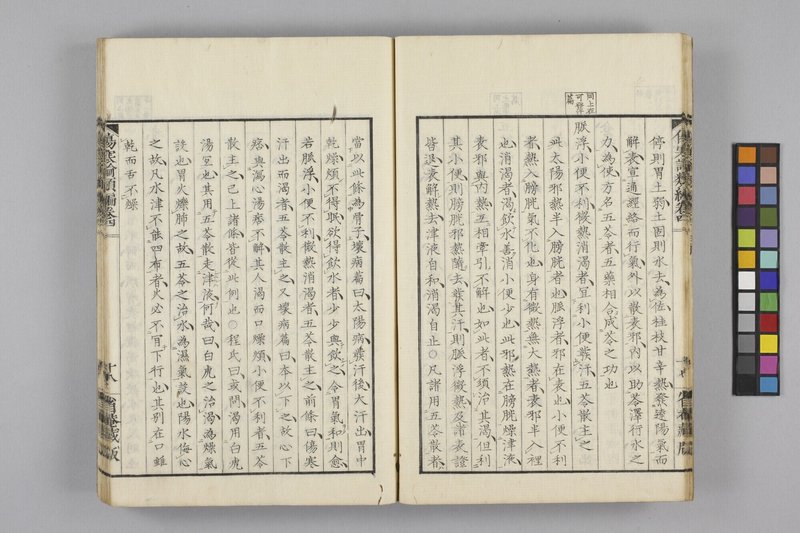 停則胃土弱土固則水去爲佐桂枝甘辛熱發達陽氣而
解表宣通經絡而行氣外以散表邪內以助苓澤行水之
力爲使方名五苓者五藥相合成苓之功也
同上在可發汗篇
脈浮小便不利微熱消渴者宜利小便發汗五苓散主之
此太陽邪熱半入膀胱者也脈浮者邪在表也小便不利
者熱入膀胱氣不化也身有微熱無大熱者表邪半入裡
也消渴者渴飲水善消小便少也此邪熱在膀胱燥津液
表邪與內熱互相牽引不解也如此者不須治其渴但利
其小便則膀胱邪熱隨去發其汗則脈浮微熱及諸表證
皆退表解熱去津液自和消渴自止○凡諸用五苓散者
傷寒論類編卷四
省菴藏版
當以此條爲骨子壞病篇曰太陽病發汗後大汗出胃中
乾燥煩不得眠欲得飲水者少少與飲之令胃氣和則愈
若脈浮小便不利微熱消渴者五苓散主之前條曰傷寒
汗出而渴者五苓散主之又壞病篇曰本以下之故心下
痞與瀉心湯痞不解其人渴而口燥煩小便不利者五苓
散主之已上諸條皆從此例也○程氏曰或問渴用白虎
湯宜也其用五苓散走津液何哉曰白虎之治渴爲燥氣
設也胃火爍肺之故五苓之治水爲濕氣設也陽水侮心
之故凡水津不能四布者火必不肎下行也其別在口雖
乾而舌不燥
傷寒論類編卷四
廿八
省菴藏版